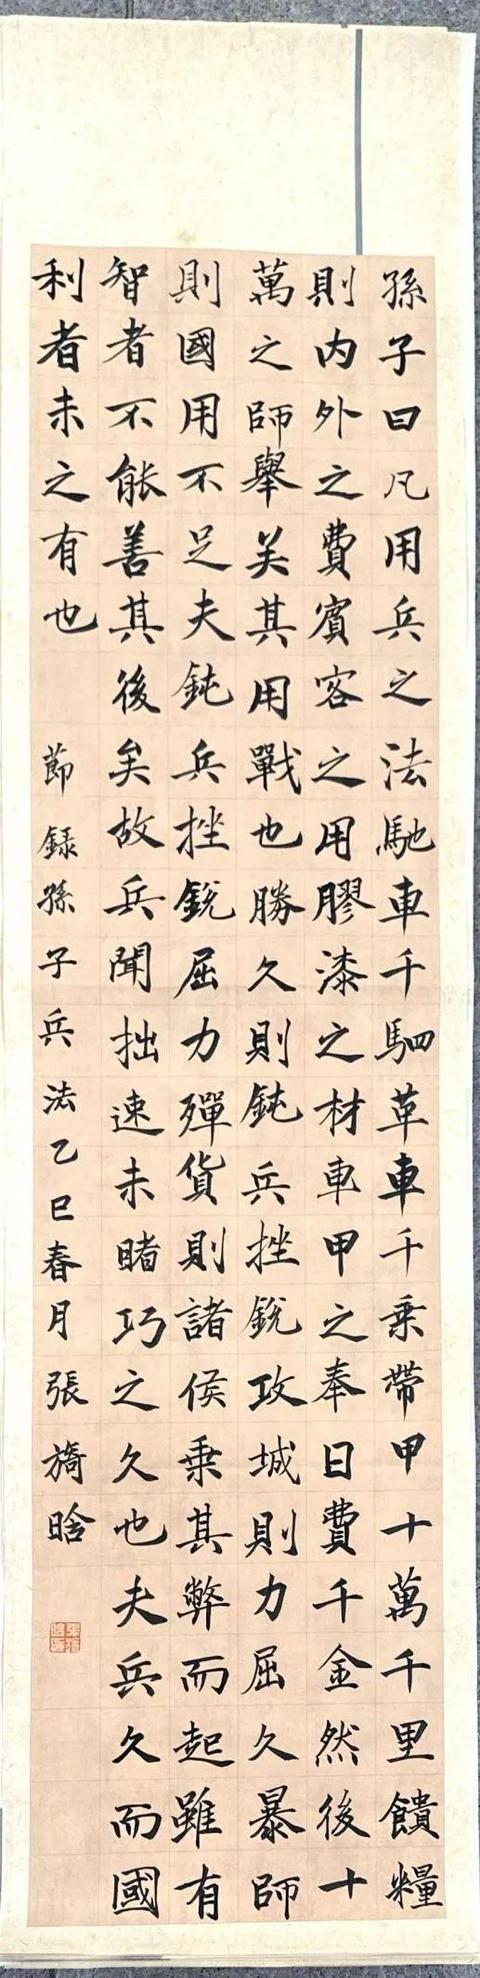 孫子曰凡用兵之法馳車千駟革車千乘帶甲十萬千里饋糧
則内外之費賓客之用膠漆之材車甲之奉日費千金然後十
萬之師舉矣其用戰也勝久則鈍兵挫銳攻城則力屈久暴師
則國用不足夫鈍兵挫銳屈力殫貨則諸侯乘其弊而起雖有
智者不能善其後矣故兵聞拙速未睹巧之久也夫兵久而國
利者未之有也 節録孫子兵法乙巳春月張旖晗